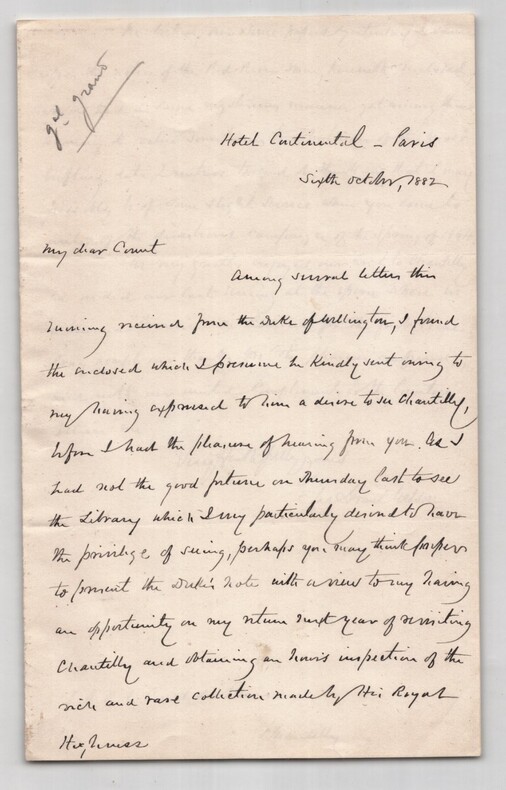 gal. grand
Hotel Continental – Paris
Sixth October, 1882
My dear Count
Among several letters this
morning received from the Duke of Wellington, I found
the enclosed which I presume he kindly sent owing to
my having expressed to him a desire to see Chantilly,
before I had the pleasure of hearing from you. As I
had not the good fortune on Thursday last to see
the Library which I my particularly desired to have
the privilege of seeing, perhaps you may think proper
to present the Duke's note with a view to my having
an opportunity on my return next year of revisiting
Chantilly and obtaining an hour's inspection of the
rich and rare collection made by His Royal
Highness